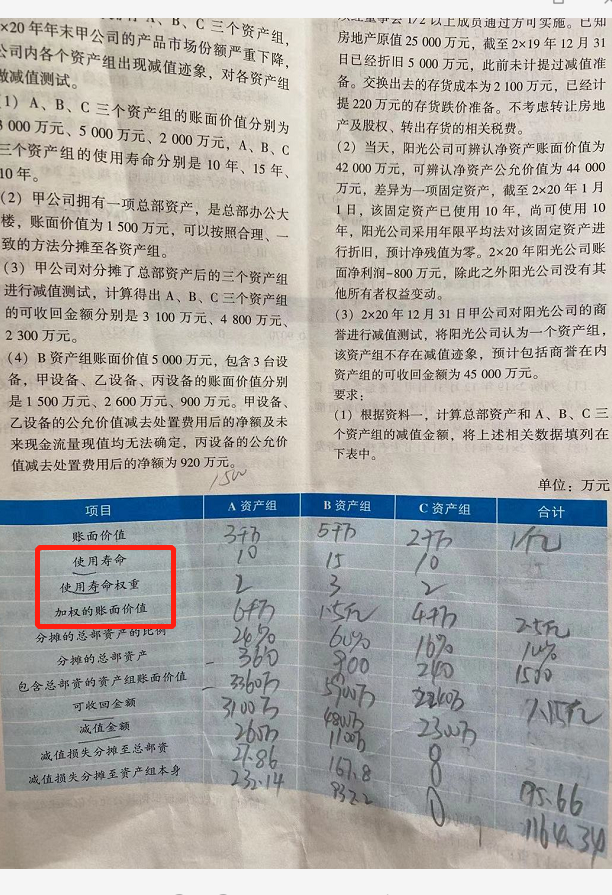 ×20年年末甲公司的产品市场份额严重下降,
公司内各个资产组出现减值迹象,对各资产组
做减值测试。
(1)A、B、C三个资产组的账面价值分别为
3 000万元、5 000万元、2 000万元,A、B、C
三个资产组的使用寿命分别是10年、15年、
10年。
(2)甲公司拥有一项总部资产,是总部办公大
楼,账面价值为1 500万元,可以按照合理、一
致的方法分摊至各资产组。
(3)甲公司对分摊了总部资产后的三个资产组
进行减值测试,计算得出A、B、C三个资产组
的可收回金额分别是3 100万元、4 800万元、
2 300万元。
(4)B资产组账面价值5 000万元,包含3台设
备,甲设备、乙设备、丙设备的账面价值分别
是1 500万元、2 600万元、900万元。甲设备、
乙设备的公允价值减去处置费用后的净额及未
来现金流量现值均无法确定,丙设备的公允价
值减去处置费用后的净额为920万元。
1/2以上成员通过方可实施。已知
房地产原值25 000万元,截至2×19年12月31
日已经折旧5 000万元,此前未计提过减值准
备。交换出去的存货成本为2 100万元,已经计
提220万元的存货跌价准备。不考虑转让房地
产及股权、转出存货的相关税费。
(2)当天,阳光公司可辨认净资产账面价值为
42 000万元,可辨认净资产公允价值为44 000
万元,差异为一项固定资产,截至2×20年1月
1日,该固定资产已使用10年,尚可使用10
年,阳光公司采用年限平均法对该固定资产进
行折旧,预计净残值为零。2×20年阳光公司账
面净利润-800万元,除此之外阳光公司没有其
他所有者权益变动。
(3)2×20年12月31日甲公司对阳光公司的商
誉进行减值测试,将阳光公司认为一个资产组,
该资产组不存在减值迹象,预计包括商誉在内
资产组的可收回金额为45 000万元。
要求:
(1)根据资料一,计算总部资产和A、B、C三
个资产组的减值金额,将上述相关数据填列在
下表中。
1500
单位:万元
项目 A资产组 B资产组 C资产组 合计
账面价值 3千万 5千万 2千万 1亿元
使用寿命 10 15 10
使用寿命权重 2 3 2
加权的账面价值 6千万 1.5亿元 4千万 2.5亿元
分摊的总部资产的比例 24% 60% 16%
分摊的总部资产 360 900 240 1500
包含总部资的资产组账面价值 3360万 5900万 2240万
可收回金额 3100万 4800万 2300万
减值金额 260万 1100万 0
减值损失分摊至总部资 27.86 167.8 195.66
减值损失分摊至资产组本身 232.14 932.2 0 1164.34